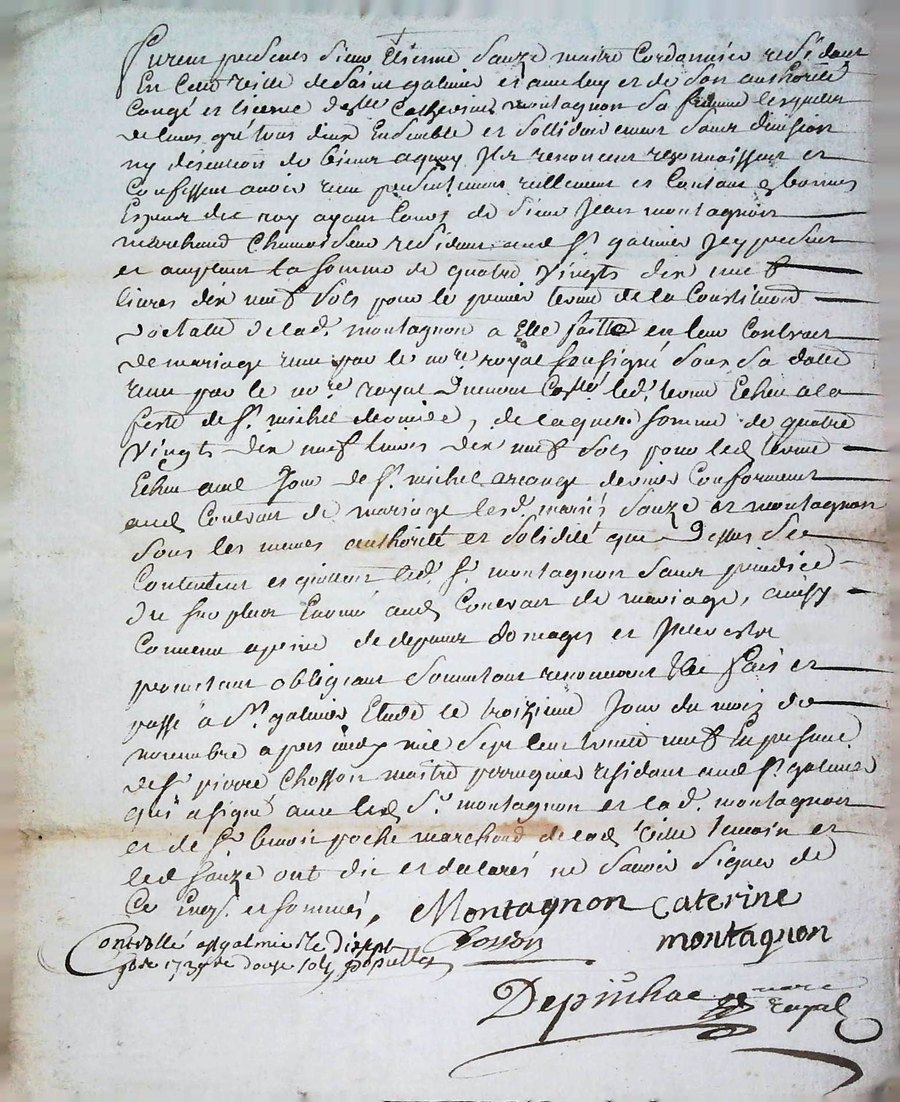 Furent presents sieur Étienne Sauze maitre Cordonnier residant
En Cette ville de Saint galmier et avec luy et de son authorité
Congé et licence delle Catherine montagnon sa femme lesquels
de leurs gré tous deux Ensemble et sollidairement sans division
ny discution de biens a quoy Ils renoncent reconnoissent et
Confessent avoir receu presentement reellement et Contant En bonnes
Especes du roy ayant Cours de sieur Jean montagnon
marchand Chamoiseur residant aud St galmier Icy present
et acceptant la somme de quatre Vingts dix neuf
livres dix neuf sols pour le premier terme de la Constitution
dotalle de lad. montagnon a Elle faitte en leur Contrait
de mariage receu par le nore royal soussigné sous sa datte
receu par le nore royal led. terme Echeu a la
feste de St michel derniere, de laquelle somme de quatre
Vingts dix neuf livres dix neuf sols pour led terme
Echeu aud Jour de St michel arcange dernier Conformement
aud Contrait de mariage lesd. mariés Sauze et montagnon
sous les memes authorité et solidité que Dessus se
Contentent et quittent led. sr montagnon sans prejudice
du surplus Enoncé aud Contrait de mariage, ainsy
Convenu a peine de depens domages et Interests
promettant obligeant soumettant renonceant &c fait et
passé a St galmier Etude le troizieme Jour du mois de
novembre apres midy mil sept Cent trente neuf En presence
de sr pierre Chosson maitre perruquier residant aud St galmier
qui a signé avec led Sr montagnon et lad. montagnon
et de sr benoit poche marchand de lad Ville temoin et
led Sauze ont dit et declarés ne savoir signer de
Ce Enqs. et sommés,
Montagnon Caterine
montagnon
Chosson
Controllé a St galmier le dixe
9bre 1739 re douze sols
Depinhac nore
royal